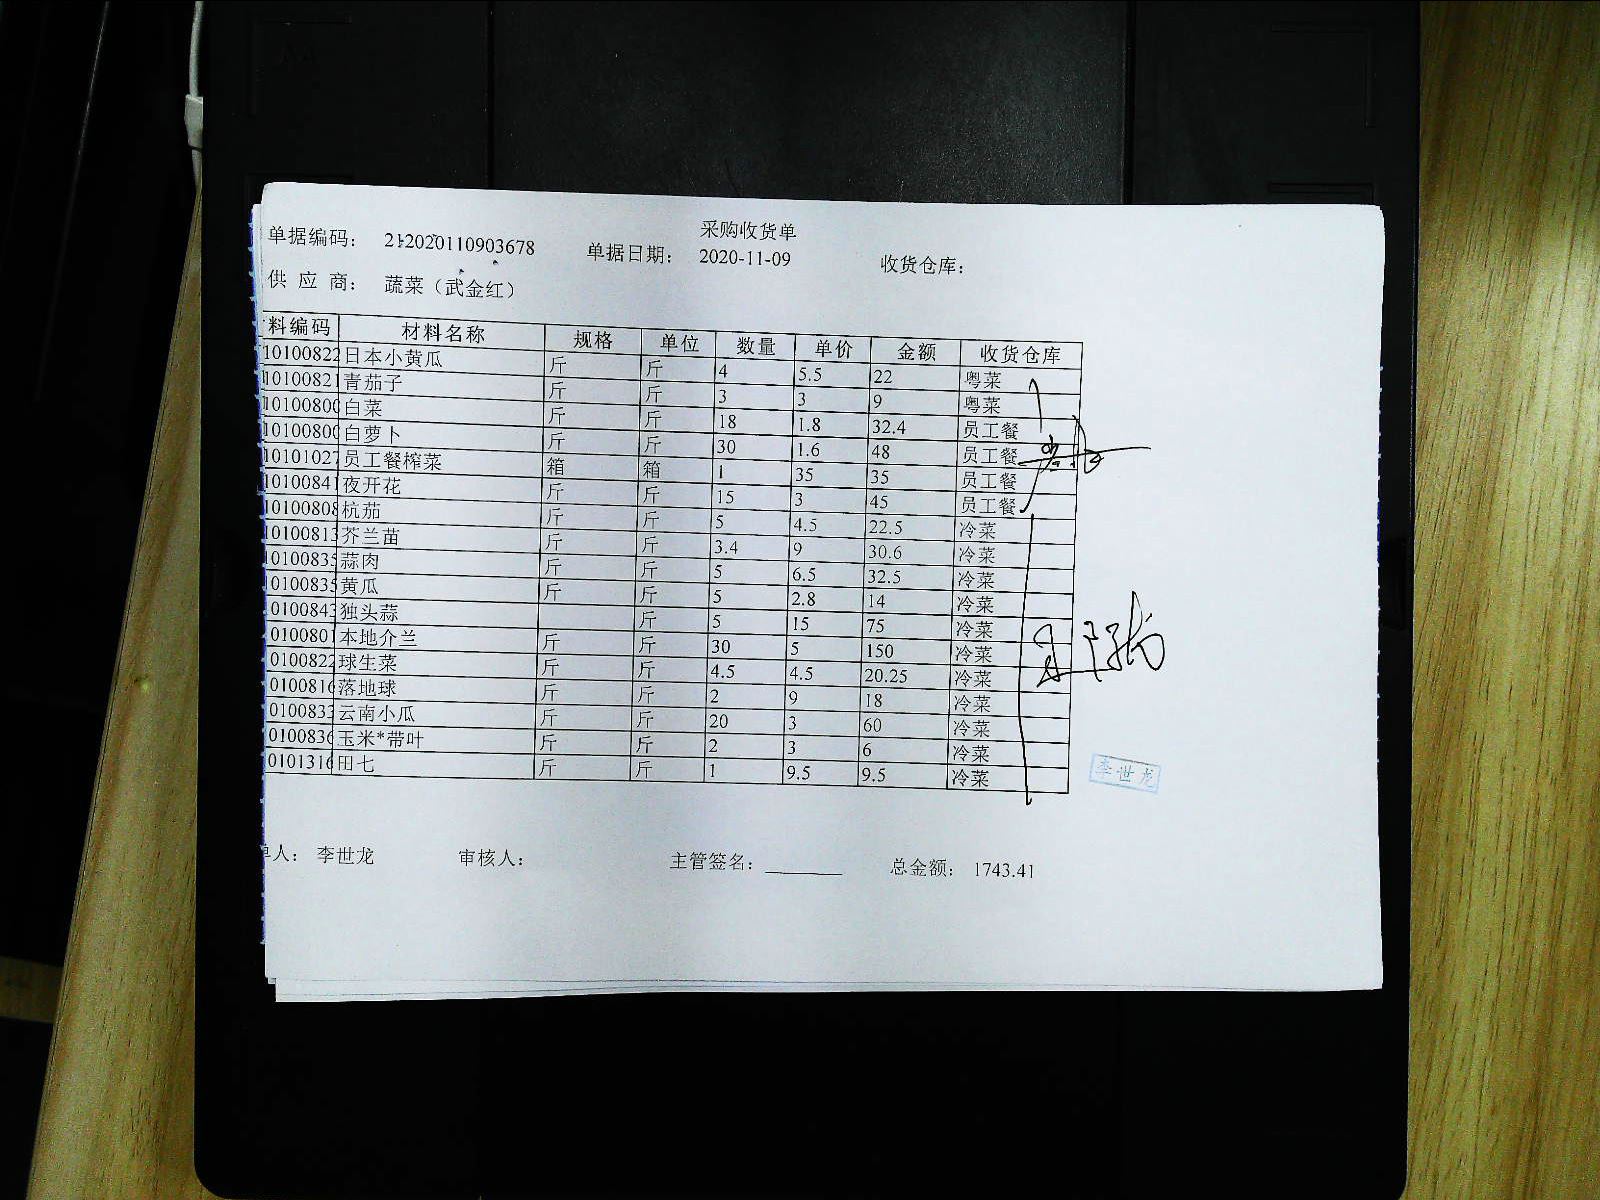 采购收货单
单据编码： 212020110903678 单据日期： 2020-11-09 收货仓库：
供 应 商： 蔬菜（武金红）
料编码 材料名称 规格 单位 数量 单价 金额 收货仓库
10100822 日本小黄瓜 斤 斤 4 5.5 22 粤菜
10100821 青茄子 斤 斤 3 3 9 粤菜
1010080 白菜 斤 斤 18 1.8 32.4 员工餐
1010080 白萝卜 斤 斤 30 1.6 48 员工餐
10101027 员工餐榨菜 箱 箱 1 35 35 员工餐
10100841 夜开花 斤 斤 15 3 45 员工餐
10100808 杭茄 斤 斤 5 4.5 22.5 冷菜
10100813 芥兰苗 斤 斤 3.4 9 30.6 冷菜
10100835 蒜肉 斤 斤 5 6.5 32.5 冷菜
10100835 黄瓜 斤 斤 5 2.8 14 冷菜
0100843 独头蒜 斤 5 15 75 冷菜
0100801 本地介兰 斤 斤 30 5 150 冷菜
0100822 球生菜 斤 斤 4.5 4.5 20.25 冷菜
0100816 落地球 斤 斤 2 9 18 冷菜
0100833 云南小瓜 斤 斤 20 3 60 冷菜
0100836 玉米*带叶 斤 斤 2 3 6 冷菜
0101316 田七 斤 斤 1 9.5 9.5 冷菜
李世龙
单人： 李世龙 审核人： 主管签名： 总金额： 1743.41